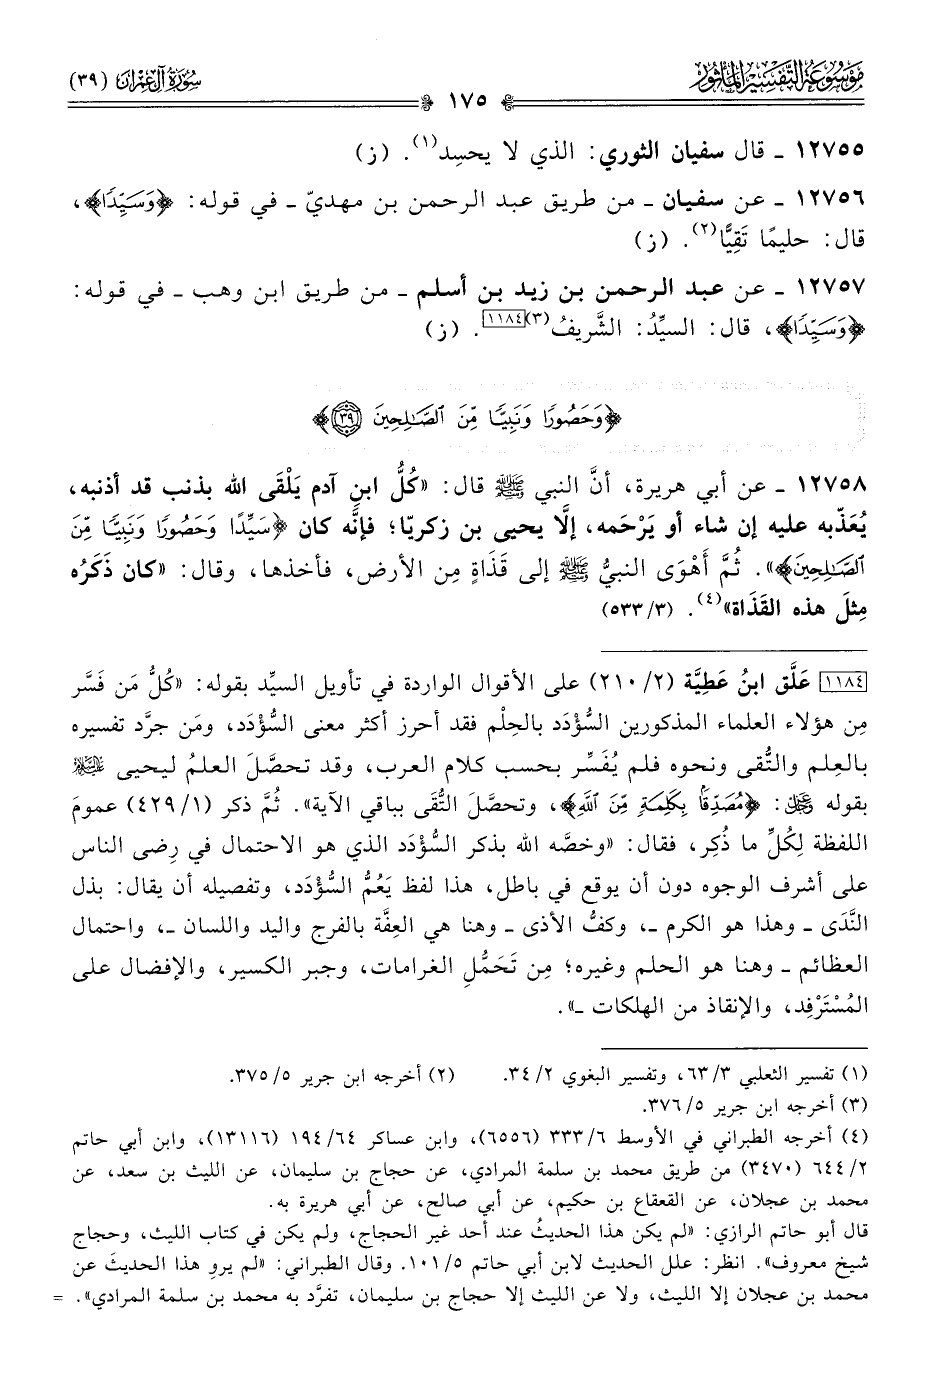 مَوْسُوعَةُ التَّفْسِيرِ المَأْثُورِ
سُورَةُ آلِ عِمْرَانَ (٣٩)
١٧٥
١٢٧٥٥ ـ قال سفيان الثوري: الذي لا يحسِد(١). (ز)
١٢٧٥٦ ـ عن سفيان ـ من طريق عبد الرحمن بن مهديّ ـ في قوله: ﴿وَسَيِّدًا﴾،
قال: حليمًا تَقِيًّا(٢). (ز)
١٢٧٥٧ ـ عن عبد الرحمن بن زيد بن أسلم ـ من طريق ابن وهب ـ في قوله:
﴿وَسَيِّدًا﴾، قال: السيِّدُ: الشَّريفُ(٣)[١١٨٤]. (ز)
﴿وَحَصُورًا وَنَبِيًّا مِّنَ ٱلصَّـٰلِحِينَ ٣٩﴾
١٢٧٥٨ ـ عن أبي هريرة، أنَّ النبي ﷺ قال: «كُلُّ ابنِ آدم يَلْقَى الله بذنب قد أذنبه،
يُعَذّبه عليه إن شاء أو يَرْحَمه، إلَّا يحيى بن زكريّا؛ فإنَّه كان ﴿سَيِّدًا وَحَصُورًا وَنَبِيًّا مِّنَ
ٱلصَّـٰلِحِينَ﴾». ثُمَّ أَهْوَى النبيُّ ﷺ إلى قَذَاةٍ مِن الأرض، فأخذها، وقال: «كان ذَكَرُه
مِثلَ هذه القَذَاة»(٤). (٣/٥٣٣)
[١١٨٤] عَلَّق ابنُ عَطِيَّة (٢/٢١٠) على الأقوال الواردة في تأويل السيِّد بقوله: «كُلُّ مَن فَسَّر
مِن هؤلاء العلماء المذكورين السُّؤدَد بالحِلْم فقد أحرز أكثر معنى السُّؤدَد، ومَن جرَّد تفسيره
بالعِلم والتُّقى ونحوه فلم يُفَسِّر بحسب كلام العرب، وقد تحصَّلَ العلمُ ليحيى عليه السلام
بقوله عز وجل: ﴿مُصَدِّقًا بِكَلِمَةٍ مِّنَ ٱللَّهِ﴾، وتحصَّلَ التُّقَى بباقي الآية». ثُمَّ ذكر (١/٤٢٩) عمومَ
اللفظة لِكُلِّ ما ذُكِر، فقال: «وخصَّه الله بذكر السُّؤدَد الذي هو الاحتمال في رِضى الناس
على أشرف الوجوه دون أن يوقع في باطل، هذا لفظ يَعُمُّ السُّؤدَد، وتفصيله أن يقال: بذل
النَّدَى ـ وهذا هو الكرم ـ، وكفُّ الأذى ـ وهنا هي العِفَّة بالفرج واليد واللسان ـ، واحتمال
العظائم ـ وهنا هو الحلم وغيره؛ مِن تَحَمُّلِ الغرامات، وجبر الكسير، والإفضال على
المُسْتَرْفِد، والإنقاذ من الهلكات ـ».
(١) تفسير الثعلبي ٣/ ٦٣، وتفسير البغوي ٢/ ٣٤. (٢) أخرجه ابن جرير ٥/ ٣٧٥.
(٣) أخرجه ابن جرير ٥/ ٣٧٦.
(٤) أخرجه الطبراني في الأوسط ٦/ ٣٣٣ (٦٥٥٦)، وابن عساكر ٦٤/ ١٩٤ (١٣١١٦)، وابن أبي حاتم
٢/ ٦٤٤ (٣٤٧٠) من طريق محمد بن سلمة المرادي، عن حجاج بن سليمان، عن الليث بن سعد، عن
محمد بن عجلان، عن القعقاع بن حكيم، عن أبي صالح، عن أبي هريرة به.
قال أبو حاتم الرازي: «لم يكن هذا الحديثُ عند أحد غير الحجاج، ولم يكن في كتاب الليث، وحجاج
شيخ معروف». انظر: علل الحديث لابن أبي حاتم ٥/ ١٠١. وقال الطبراني: «لم يروِ هذا الحديثَ عن
محمد بن عجلان إلا الليث، ولا عن الليث إلا حجاج بن سليمان، تفرَّد به محمد بن سلمة المرادي». =